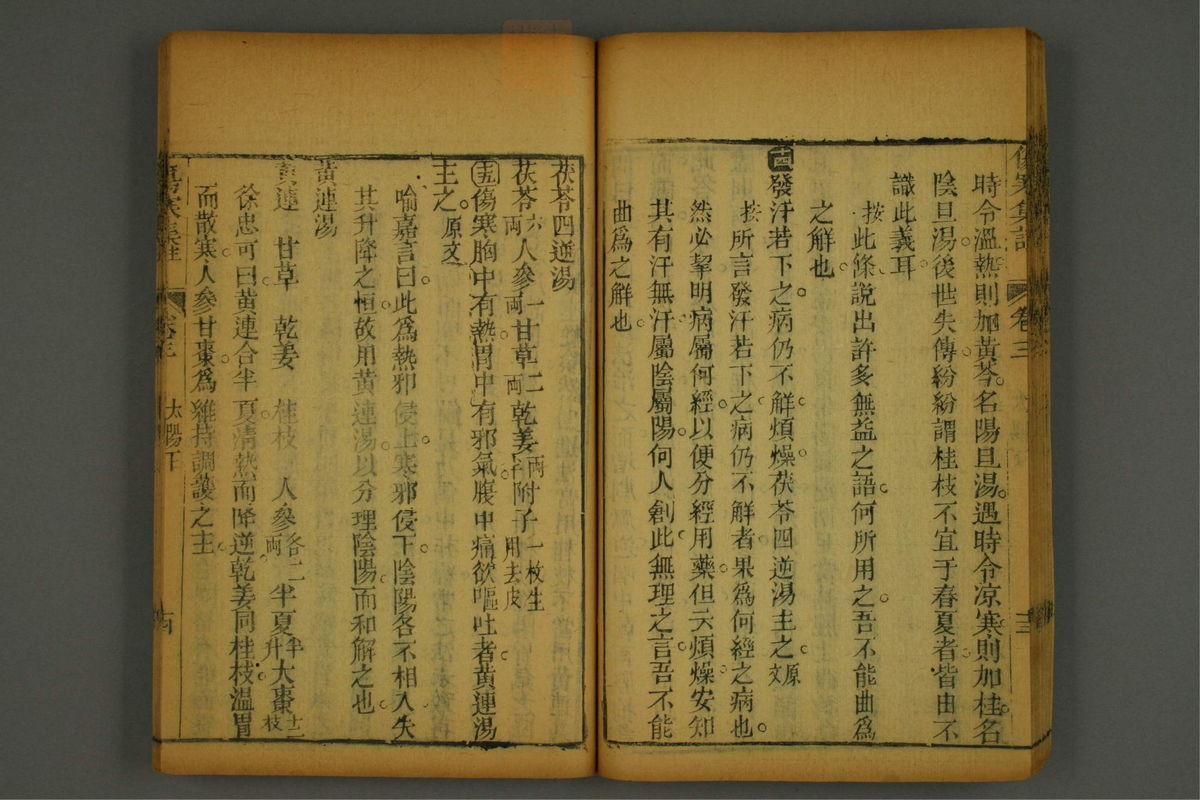 傷寒集註 卷三 十三
時令溫熱則加黃芩名陽旦湯遇時令凉寒則加桂名
陰旦湯後世失傳紛紛謂桂枝不宜于春夏者皆由不
識此義耳
按此條說出許多無益之語何所用之吾不能曲爲
之解也
十四發汗若下之病仍不解煩燥茯苓四逆湯主之原文
按所言發汗若下之病仍不解者果爲何經之病也
然必挈明病屬何經以便分經用藥但云煩燥安知
其有汗無汗屬陰屬陽何人創此無理之言吾不能
曲爲之解也
茯苓四逆湯
茯苓六兩人參一兩甘草二兩乾姜兩半附子一枚生用去皮
十五傷寒胸中有熱胃中有邪氣腹中痛欲嘔吐者黃連湯
主之原文
喻嘉言曰此爲熱邪侵上寒邪侵下陰陽各不相入失
其升降之恒故用黄連湯以分理陰陽而和解之也
黃連湯
黃連 甘草 乾姜 桂枝 人參各二兩 半夏半升 大棗十二枝
徐忠可曰黄連合半夏清熱而降逆乾姜同桂枝溫胃
而散寒人參甘棗爲維持調護之主
卷三 太陽下 十四